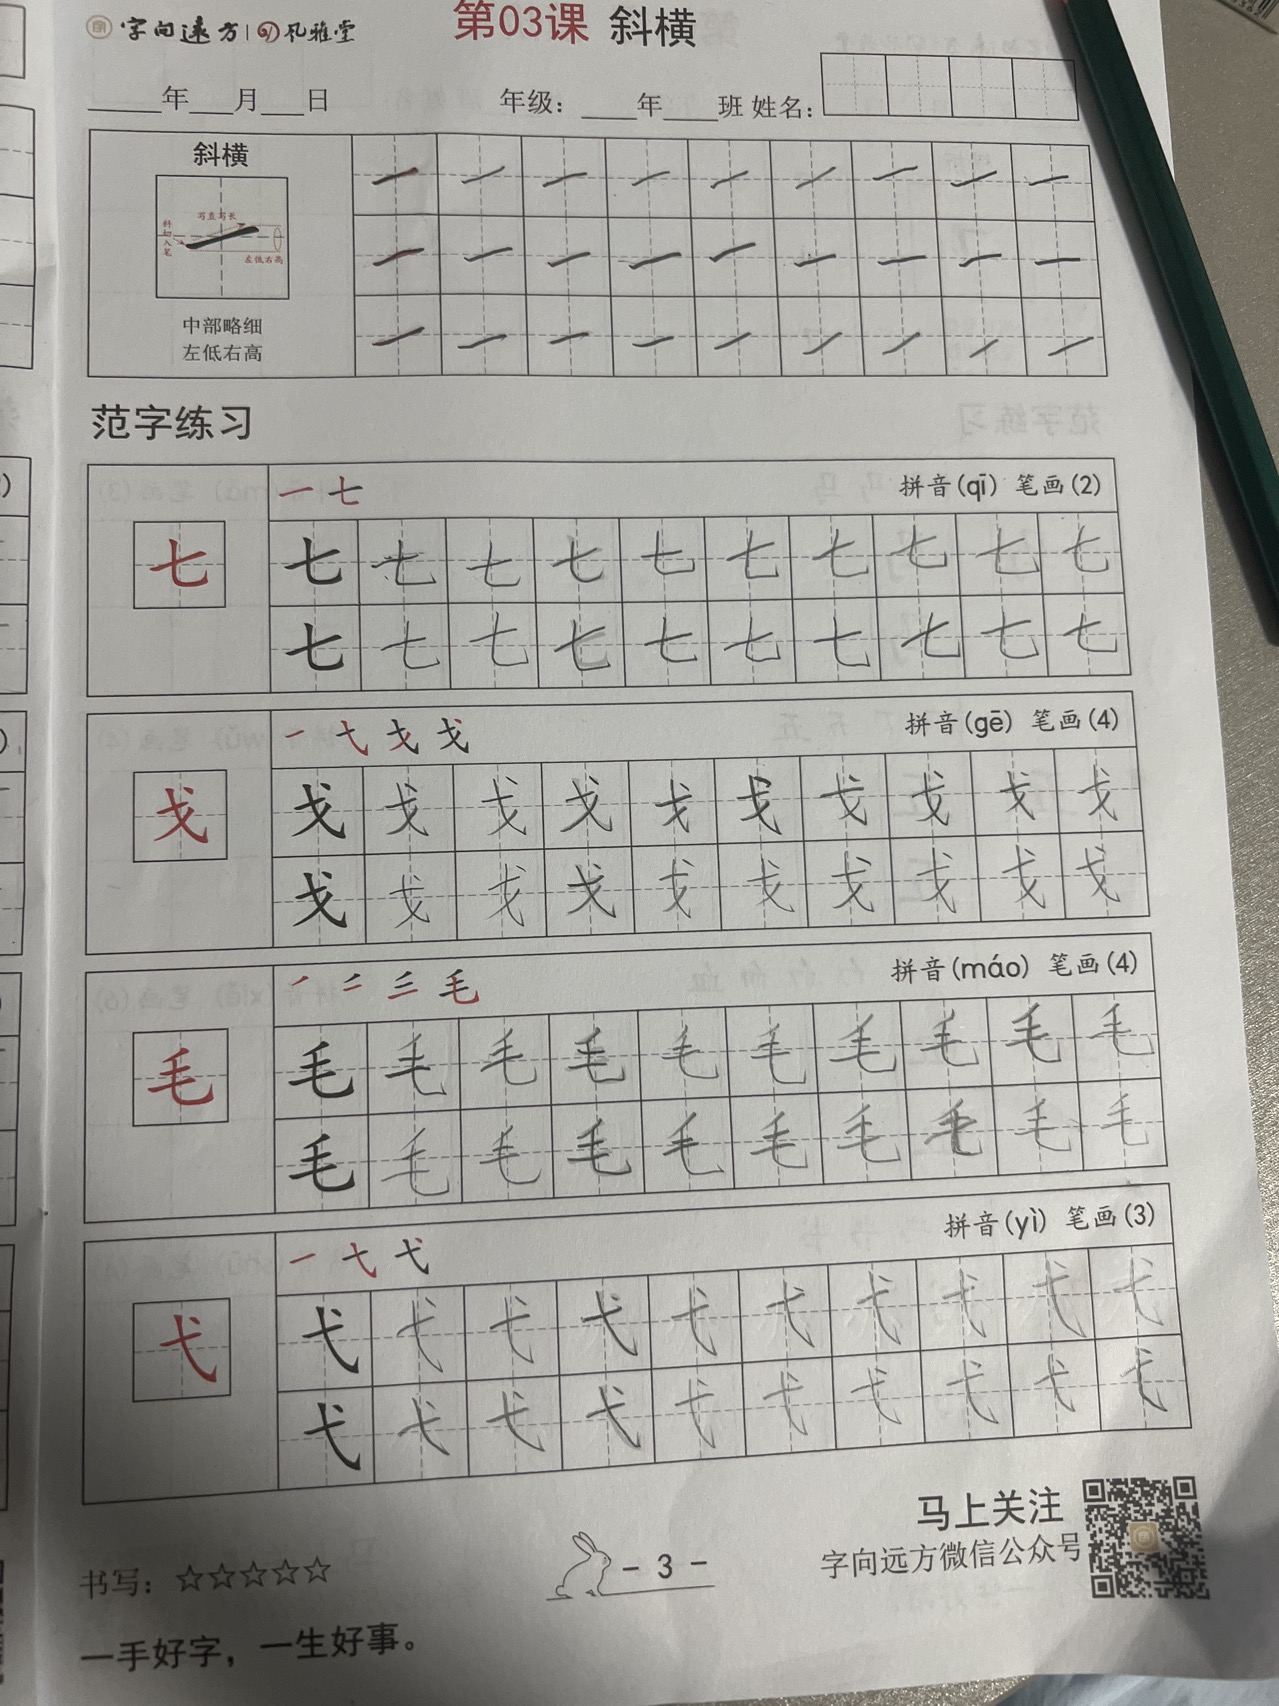 字向远方 孔雅堂
第03课 斜横
____年___月___日 年级：____年____班 姓名：
斜横
写直写长
斜切入笔
左低右高
中部略细
左低右高
范字练习
一 七 拼音(qī) 笔画(2)
七 七 七 七 七 七 七 七 七 七 七
七 七 七 七 七 七 七 七 七 七
戈 拼音(gē) 笔画(4)
戈 戈 戈 戈 戈 戈 戈 戈 戈 戈 戈
戈 戈 戈 戈 戈 戈 戈 戈 戈 戈
毛 拼音(máo) 笔画(4)
毛 毛 毛 毛 毛 毛 毛 毛 毛 毛 毛
毛 毛 毛 毛 毛 毛 毛 毛 毛 毛
一 弋 拼音(yì) 笔画(3)
弋 弋 弋 弋 弋 弋 弋 弋 弋 弋 弋
弋 弋 弋 弋 弋 弋 弋 弋 弋 弋
马上关注
字向远方微信公众号
书写：☆☆☆☆☆
- 3 -
一手好字，一生好事。